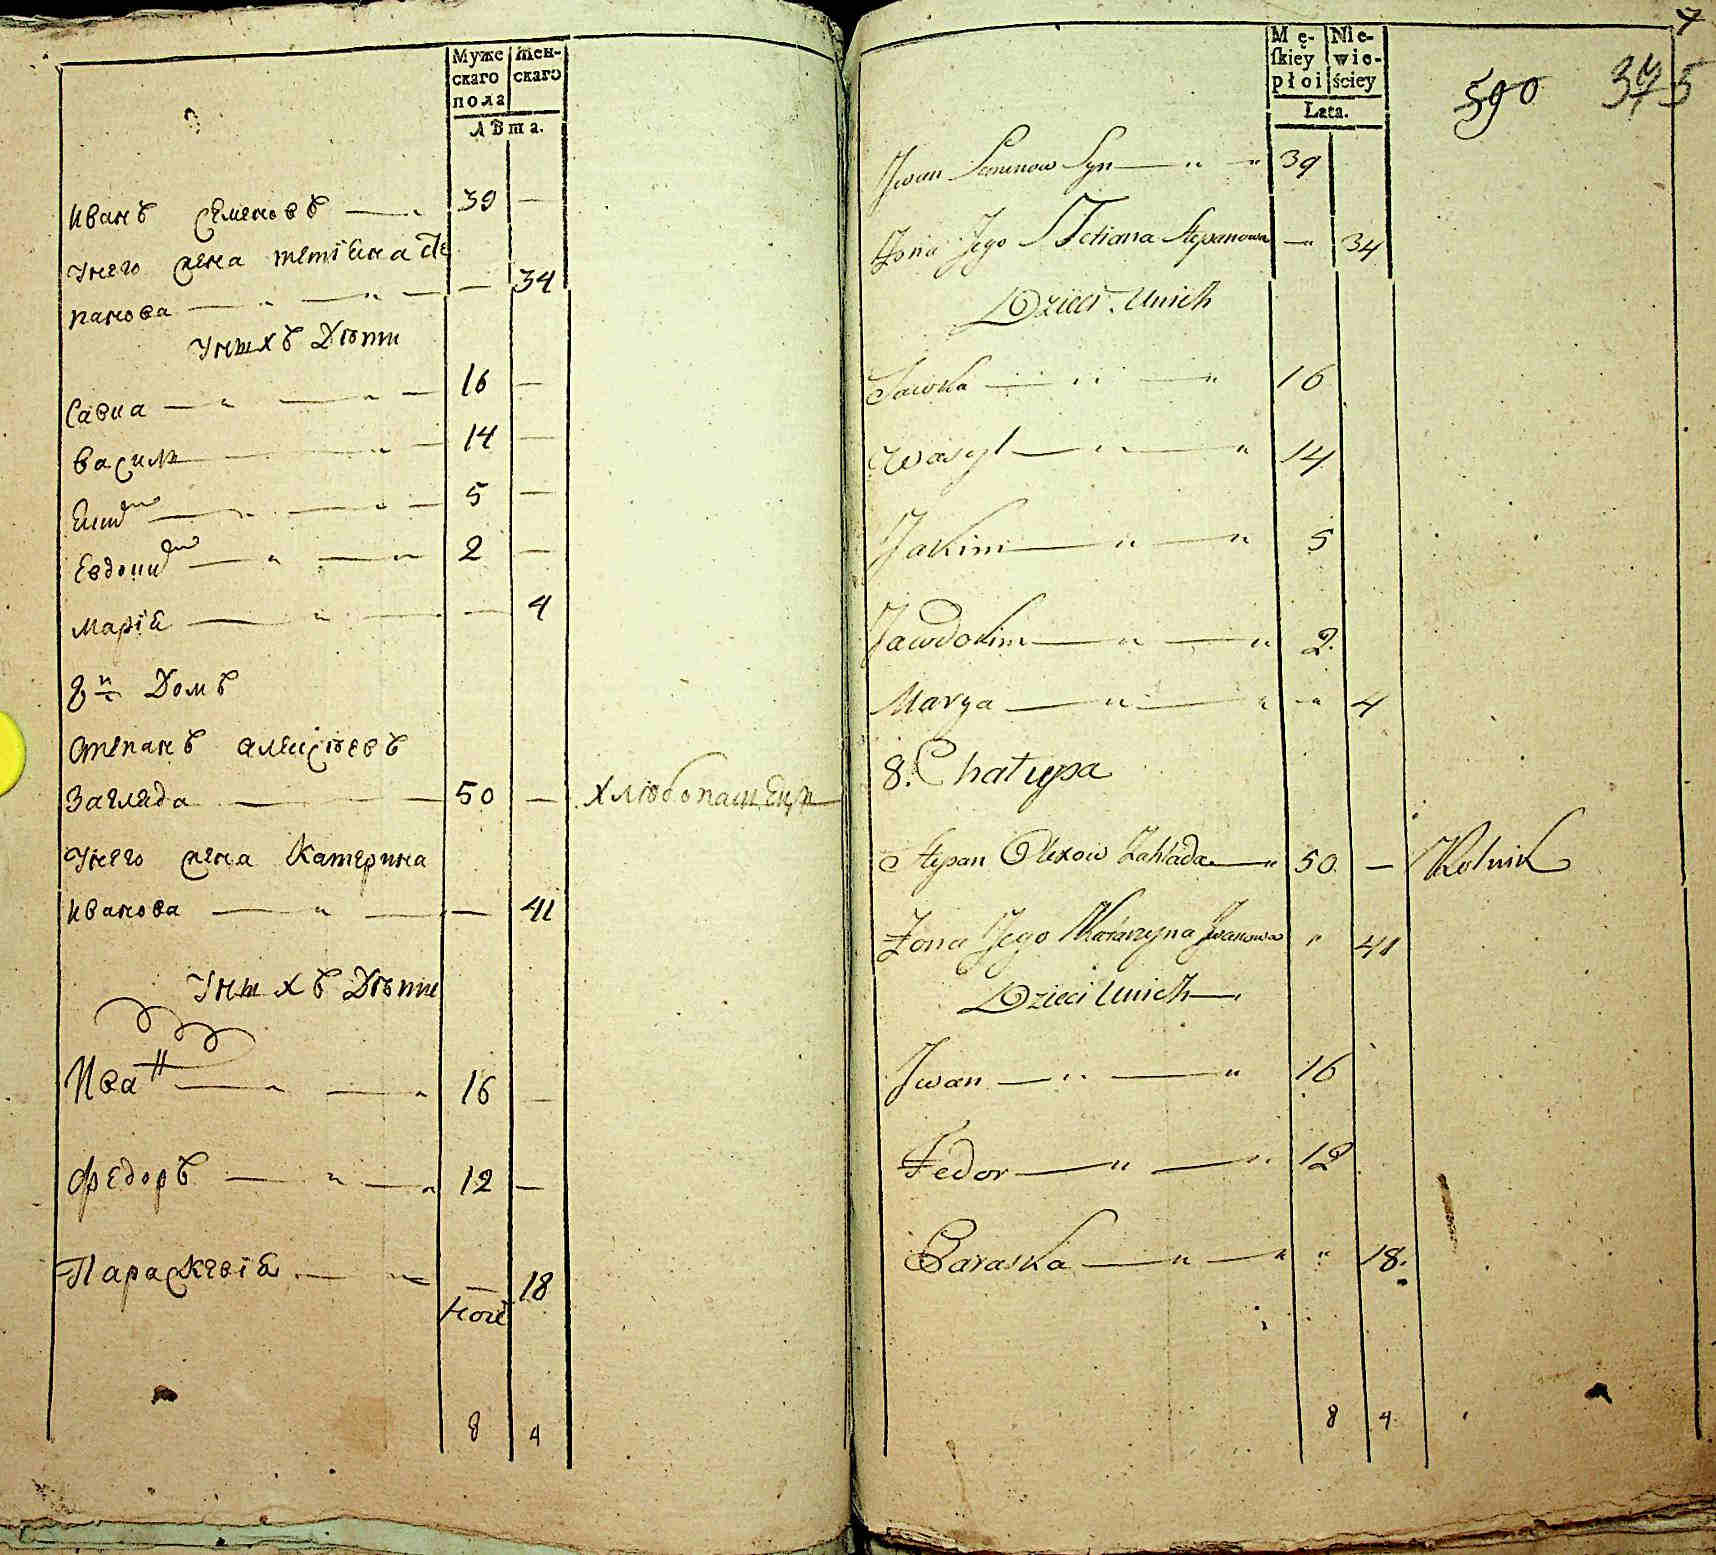 Муже
скаго
пола
Жен-
скаго
Лѣта.
Иванъ Семеновъ 39 —
Унего жена тетіяна Сте
панова — 34
Унихъ Дѣти
Савка 16 —
васили 14 —
Еким 5 —
Евдоким 2 —
Марія — 4
8й Домъ
Степанъ алексѣевъ
Загляда 50 — хлѣбопашецъ
Унего жена Катерина
Иванова — 41
Унихъ Дѣти
Иван 16 —
Федоръ 12 —
Параскевія — 18
8 4
7
Mę-
skiey
płoi
Nie-
wie-
ściey
Lata.
590 375
Jwan Semenow Syn 39
Żona Jego Tetiana Stepanowa — 34
Dzieci Unich
Sawka 16
Wasyl 14
Jakim 5
Jawdokim 2.
Marya " 4
8. Chatupa
Stepan Olexow Zahlada 50. — Rolnik
Żona Jego Katarzyna Jwanowa " 41
Dzieci Unich
Jwan 16
Fedor 12
Paraska " 18.
8 4